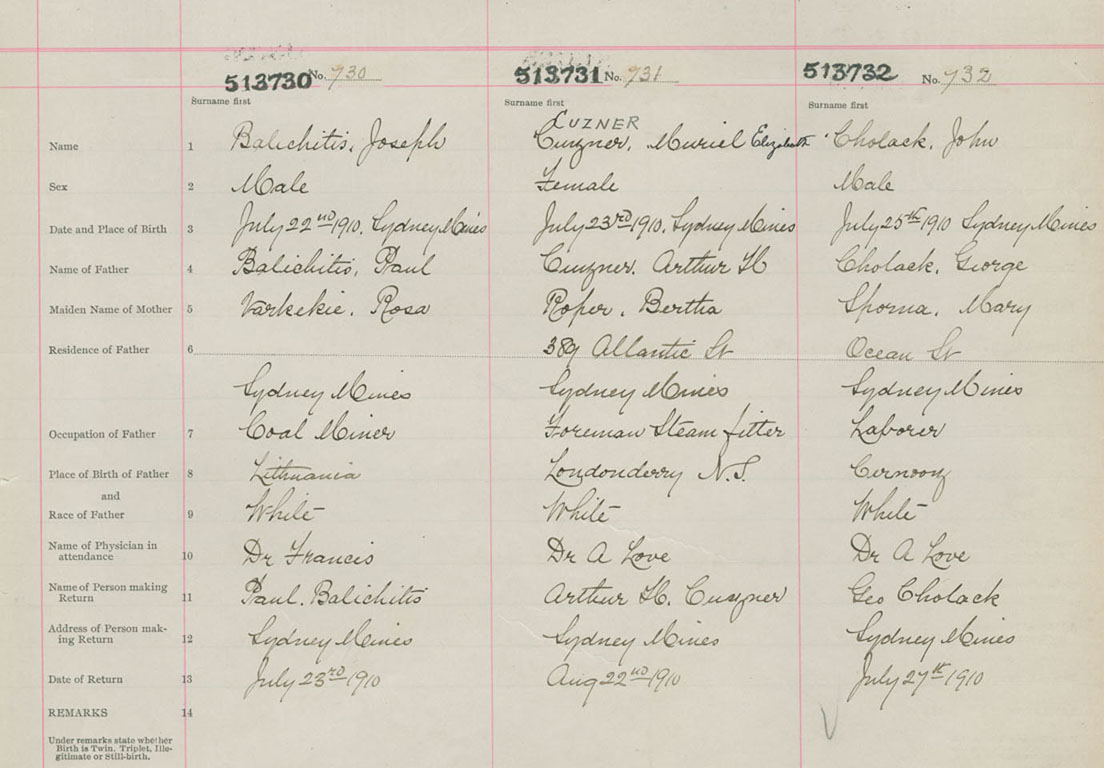 513730 No. 730 513731 No. 731 513732 No. 732
Surname first Surname first Surname first
CUZNER
Name 1 Balichitis, Joseph Cuzner, Muriel Elizabeth Cholack, John
Sex 2 Male Female Male
Date and Place of Birth 3 July 22nd 1910, Sydney Mines July 23rd 1910, Sydney Mines July 25th 1910 Sydney Mines
Name of Father 4 Balichitis, Paul Cuzner, Arthur H Cholack, George
Maiden Name of Mother 5 Varkekie, Rosa Roper, Bertha Sporna, Mary
Residence of Father 6 389 Atlantic St Ocean St
Sydney Mines Sydney Mines Sydney Mines
Occupation of Father 7 Coal Miner Foreman Steam fitter Laborer
Place of Birth of Father 8 Lithuania Londonderry N.S.
and
Race of Father 9 White White White
Name of Physician in
attendance 10 Dr Francis Dr A Love Dr A Love
Name of Person making
Return 11 Paul. Balichitis Arthur H. Cuzner Geo Cholack
Address of Person mak-
ing Return 12 Sydney Mines Sydney Mines Sydney Mines
Date of Return 13 July 23rd 1910 Aug 22nd 1910 July 27th 1910
REMARKS 14
Under remarks state whether
Birth is Twin, Triplet, Ille-
gitimate or Still-birth.